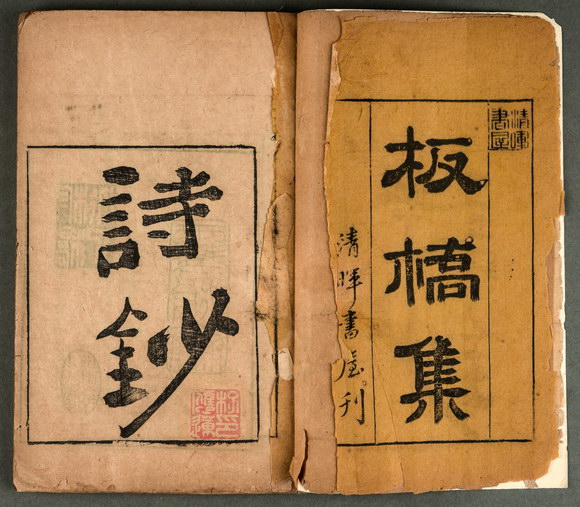 清暉書屋
板橋集
清暉書屋刊
詩鈔